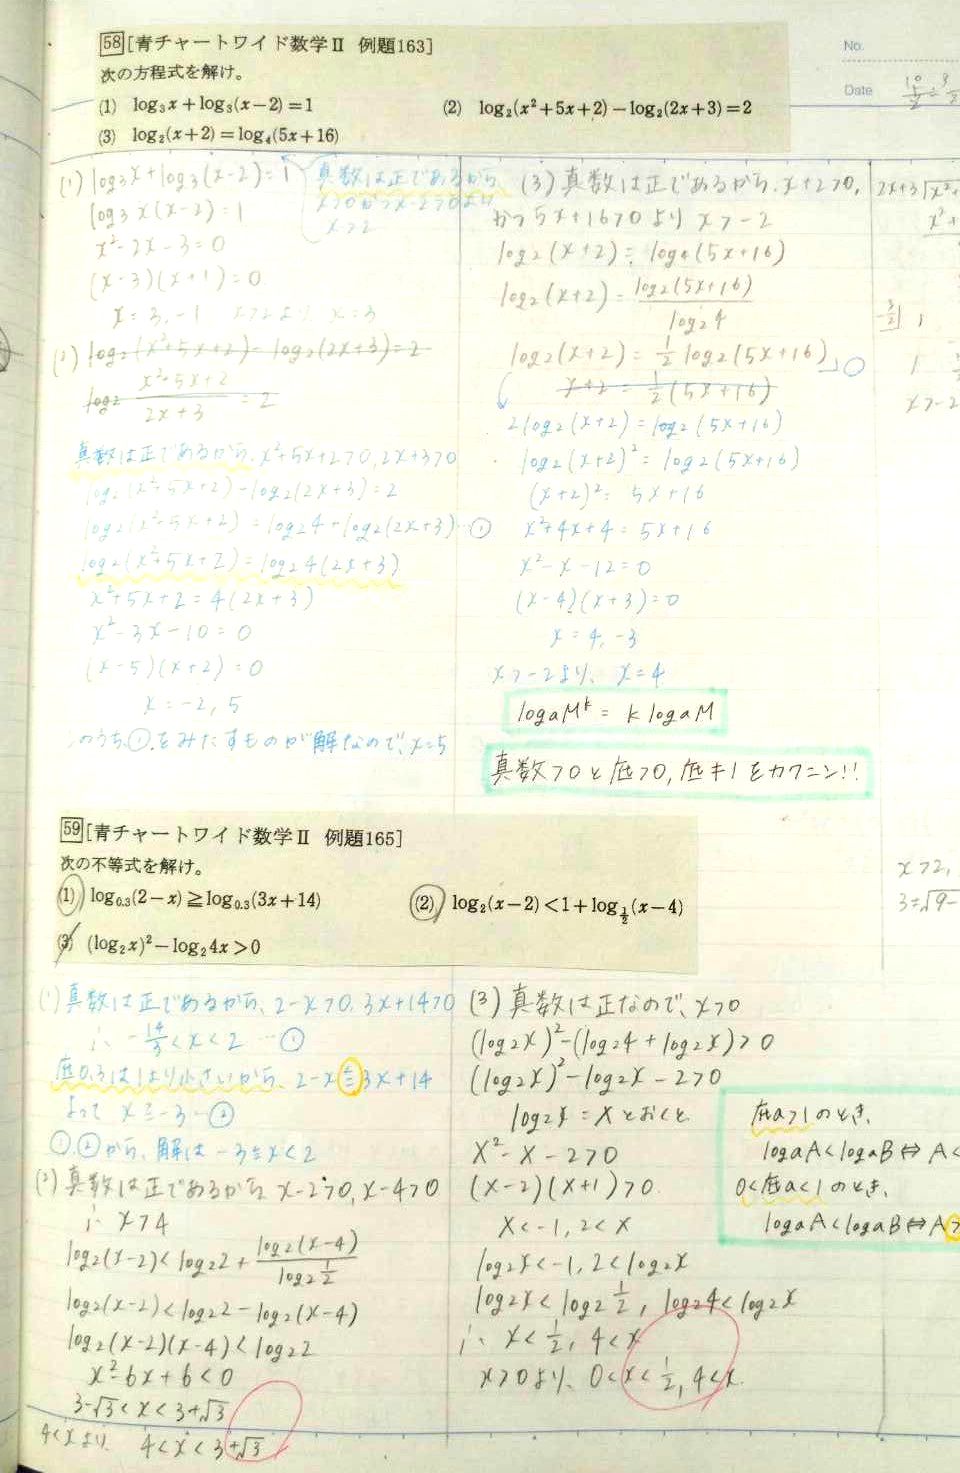 No.
Date
58 [青チャートワイド数学Ⅱ 例題163]
次の方程式を解け。
(1) log₃x+log₃(x−2)=1 (2) log₂(x²+5x+2)−log₂(2x+3)=2
(3) log₂(x+2)=log₄(5x+16)
(1) log₃x+log₃(x-2)=1
log₃x(x-2)=1
x²-2x-3=0
(x-3)(x+1)=0
x=3,-1 x>2より、x=3
真数は正であるから
x>0かつx-2>0より
x>2
(2) log₂(x²+5x+2)-log₂(2x+3)=2
log₂ (x²+5x+2)/(2x+3) = 2
真数は正であるから、x²+5x+2>0, 2x+3>0
log₂(x²+5x+2)-log₂(2x+3)=2
log₂(x²+5x+2)=log₂4+log₂(2x+3)…①
log₂(x²+5x+2)=log₂4(2x+3)
x²+5x+2=4(2x+3)
x²-3x-10=0
(x-5)(x+2)=0
x=-2,5
このうち①をみたすものが解なので、x=5
(3) 真数は正であるから、x+2>0,
かつ5x+16>0より x>-2
log₂(x+2)=log₄(5x+16)
log₂(x+2)=log₂(5x+16)/log₂4
log₂(x+2)=1/2 log₂(5x+16)
x+2=1/2(5x+16)
2log₂(x+2)=log₂(5x+16)
log₂(x+2)²=log₂(5x+16)
(x+2)²=5x+16
x²+4x+4=5x+16
x²-x-12=0
(x-4)(x+3)=0
x=4,-3
x>-2より、x=4
logaMᵏ=k logaM
真数>0と底>0,底≠1をカクニン!!
x>-2
x>2,
59 [青チャートワイド数学Ⅱ 例題165]
次の不等式を解け。
(1) log₀.₃(2−x)≧log₀.₃(3x+14) (2) log₂(x−2)<1+log_{1/2}(x−4)
(3) (log₂x)²−log₂4x>0
(1) 真数は正であるから、2-x>0, 3x+14>0
∴ -14/3<x<2 …①
底0.3は1より小さいから、2-x≦3x+14
よって x≧-3…②
①,②から、解は -3≦x<2
(2) 真数は正であるから、x-2>0, x-4>0
∴ x>4
log₂(x-2)<log₂2+log₂(x-4)/log₂ 1/2
log₂(x-2)<log₂2-log₂(x-4)
log₂(x-2)(x-4)<log₂2
x²-6x+6<0
3-√3<x<3+√3
4<xより 4<x<3+√3
(3) 真数は正なので、x>0
(log₂x)²-(log₂4+log₂x)>0
(log₂x)²-log₂x-2>0
log₂x=Xとおくと
X²-X-2>0
(X-2)(X+1)>0
X<-1, 2<X
log₂x<-1, 2<log₂x
log₂x<log₂ 1/2, log₂4<log₂x
∴ x<1/2, 4<x
x>0より、0<x<1/2, 4<x
底a>1のとき、
logaA<logaB⇔A<
0<底a<1のとき、
logaA<logaB⇔A>